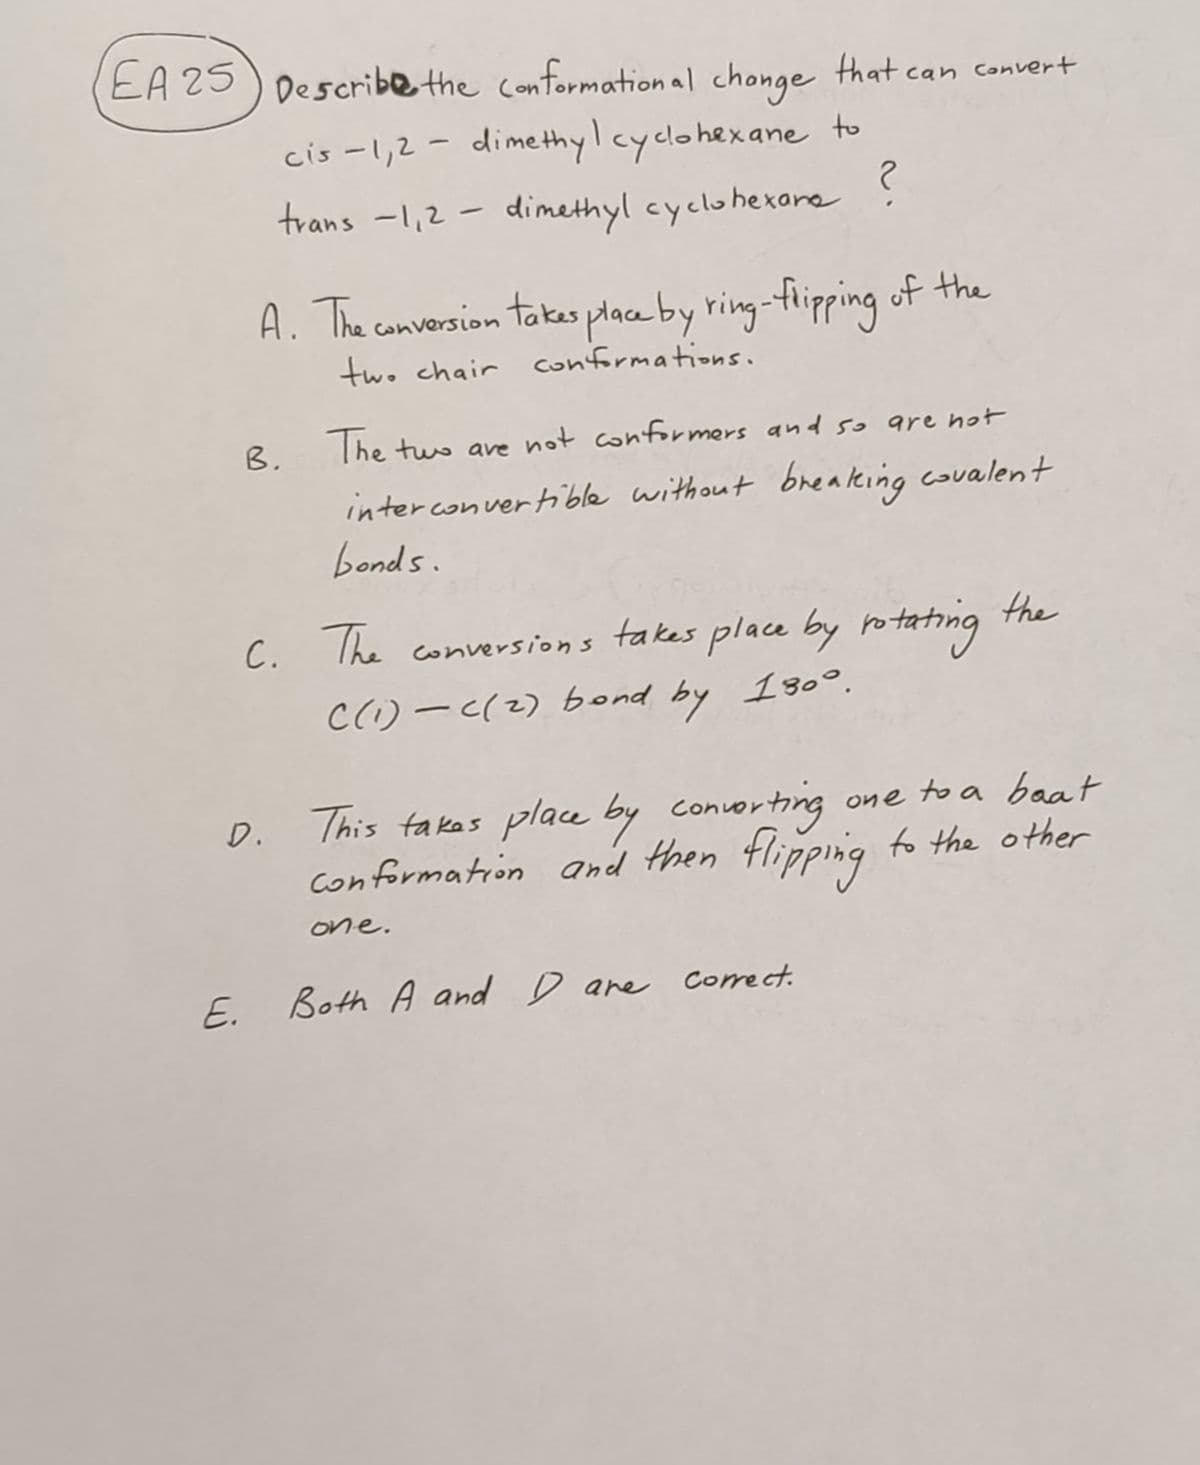 EA 25 Describe the conformational change that can convert
cis-1,2- dimethylcyclohexane to
trans-1,2- dimethyl cyclohexane ?
A. The conversion takes place by ring-flipping of the
two chair conformations.
B. The two are not conformers and so are not
interconvertible without breaking covalent
bonds.
C. The conversions takes place by rotating the
C(1)-C(2) bond by 180°.
D. This takes place by converting one to a boat
conformation and then flipping to the other
one.
E. Both A and D are correct.